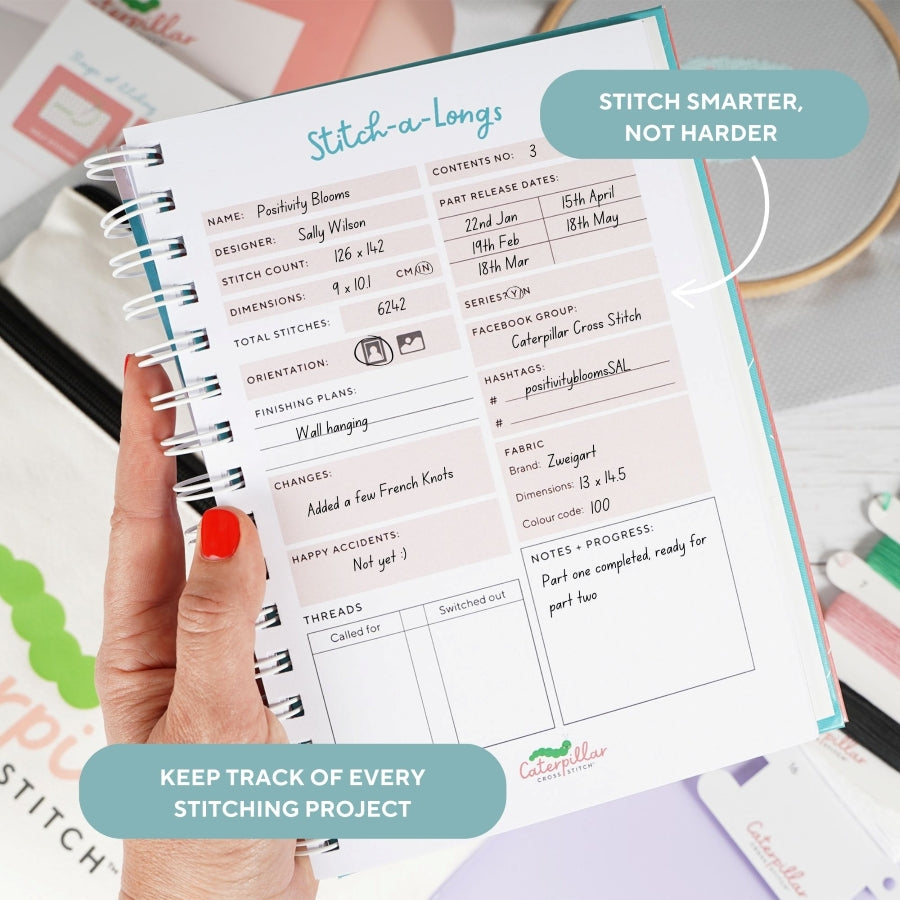 Caterpillar
STITCH SMARTER,
NOT HARDER
Stitch-a-Longs
NAME: Positivity Blooms
DESIGNER: Sally Wilson
STITCH COUNT: 126 x 142
DIMENSIONS: 9 x 10.1 CM/IN
TOTAL STITCHES: 6242
ORIENTATION:
FINISHING PLANS:
Wall hanging
CHANGES:
Added a few French Knots
HAPPY ACCIDENTS:
Not yet :)
THREADS
Called for Switched out
CONTENTS NO: 3
PART RELEASE DATES:
22nd Jan 15th April
19th Feb 18th May
18th Mar
SERIES? Y/N
FACEBOOK GROUP:
Caterpillar Cross Stitch
HASHTAGS:
# positivitybloomsSAL
#
FABRIC
Brand: Zweigart
Dimensions: 13 x 14.5
Colour code: 100
NOTES + PROGRESS:
Part one completed, ready for
part two
Caterpillar
CROSS STITCH
KEEP TRACK OF EVERY
STITCHING PROJECT
STITCH
Caterpillar
16
Caterpillar
CROSS STITCH